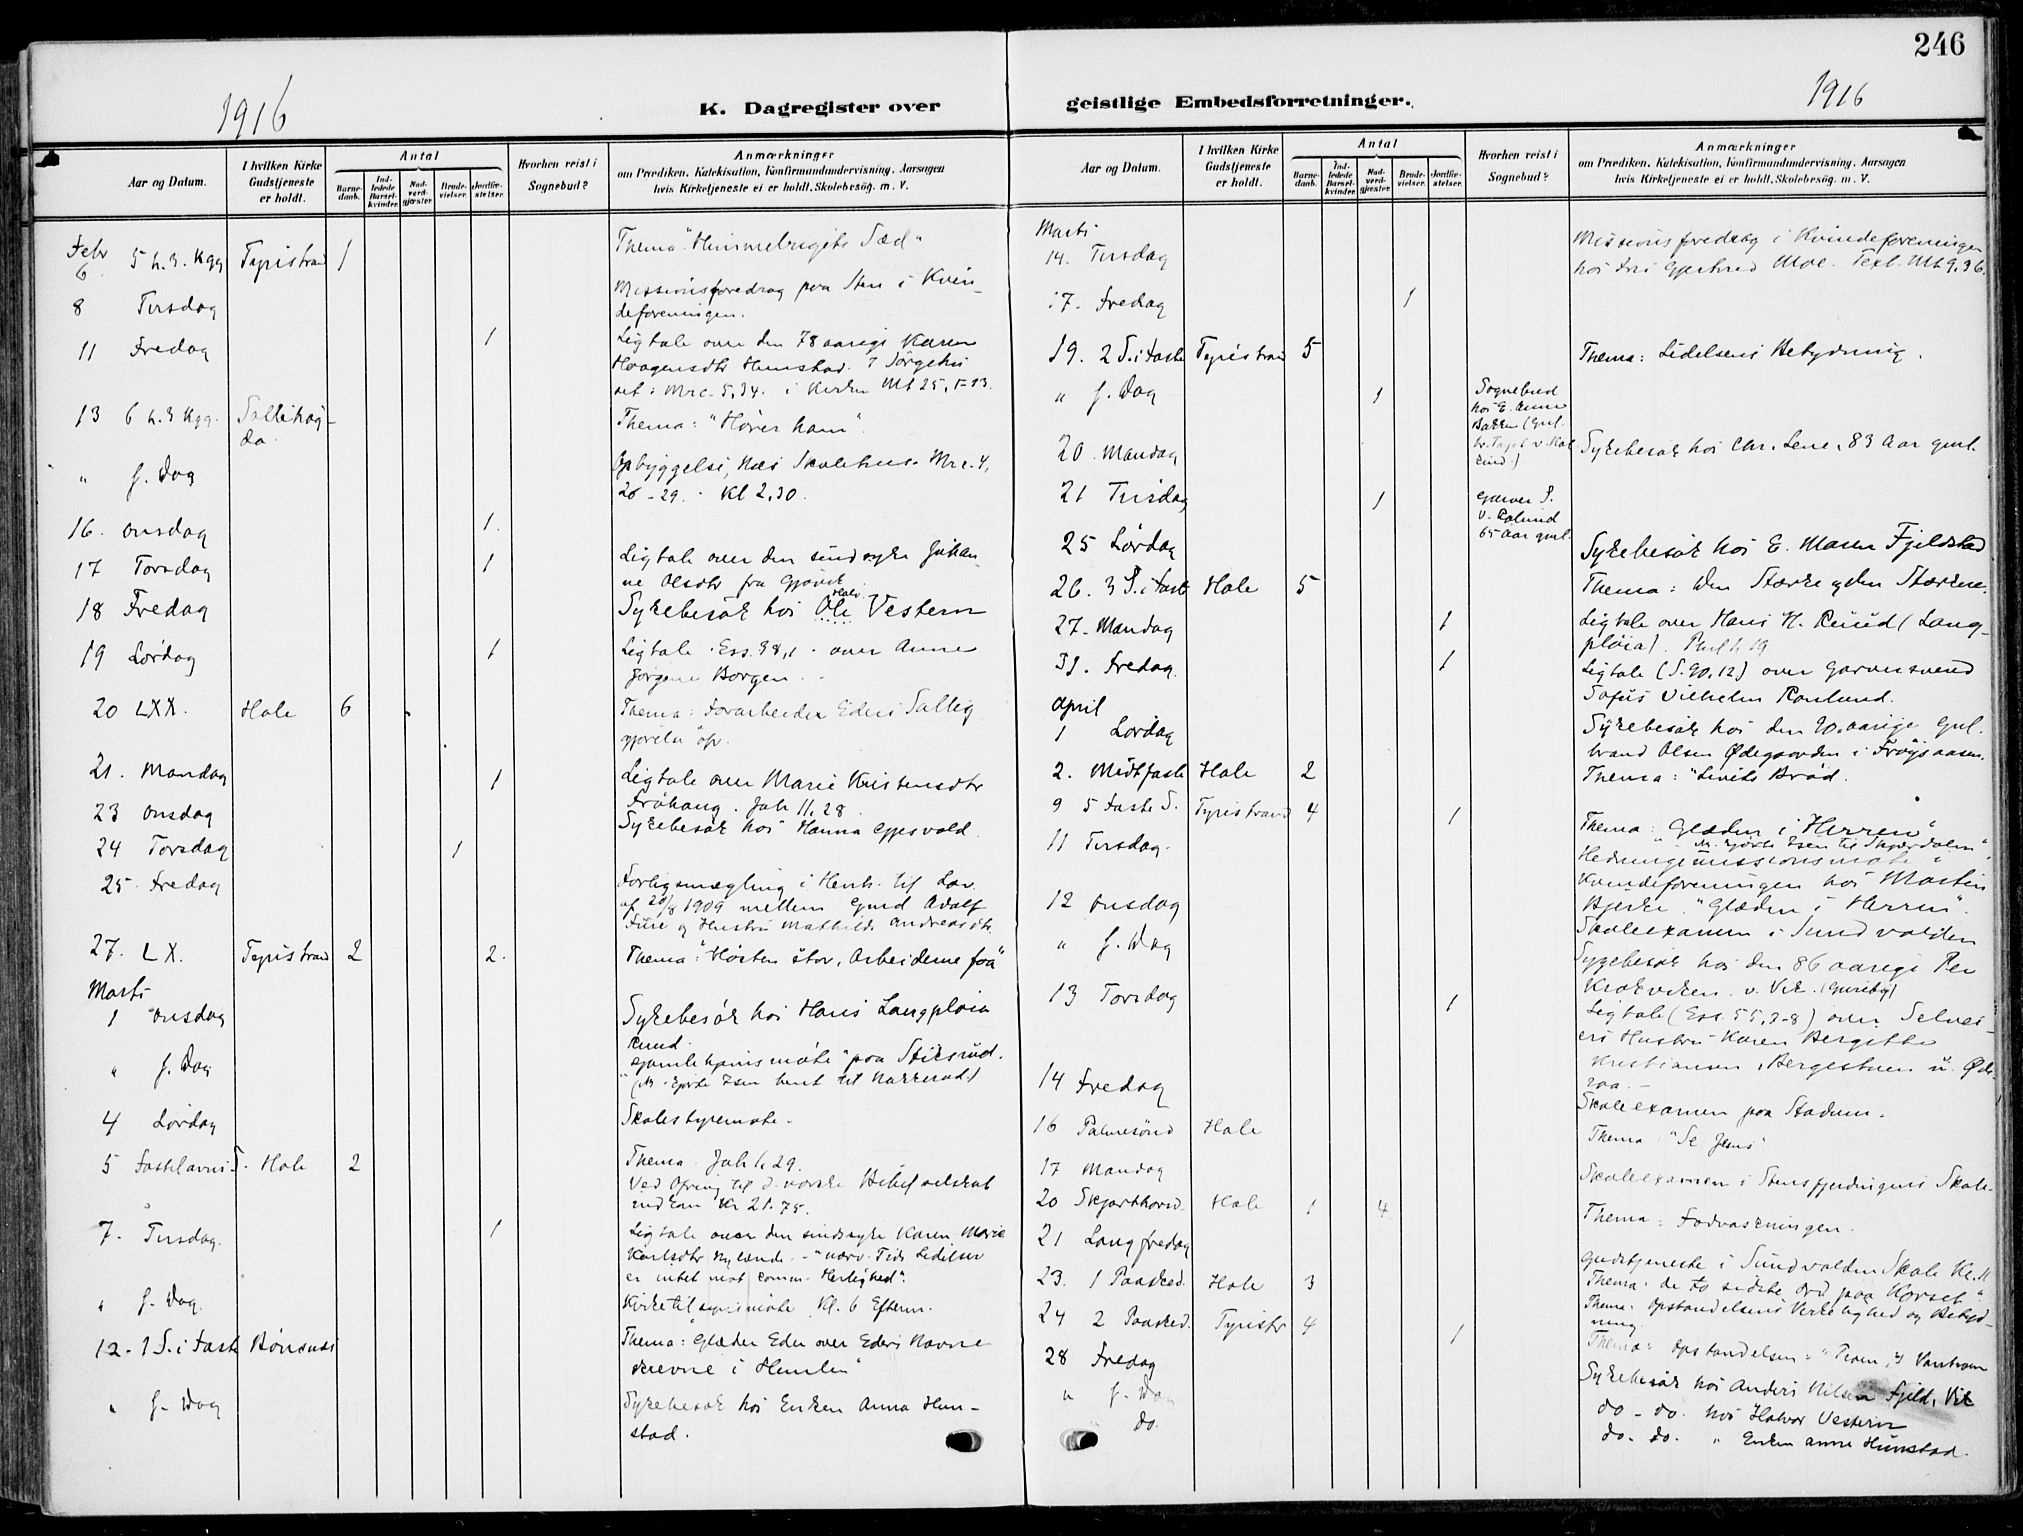 246
1916
K. Dagregister over
geistlige Embedsforretninger.
1916
Aar og Datum.
I hvilken Kirke Gudstjeneste er holdt.
Antal
Barnedaab.
Indledede Barselkvinder.
Nadverdgjæster.
Brudevielser.
Jordfæstelser.
Hvorhen reist i Sognebud?
Anmærkninger
om Prædiken, Katekisation, Konfirmandundervisning, Aarsagen
hvis Kirketjeneste ei er holdt, Skolebesøg. m. V.
Febr
6 5 h. 3. Kgg Tyristrand 1 Thema "Himmelrigets Sæd"
8 Tirsdag Missionsforedrag paa Sten i Kvin-
deforeningen.
11 Fredag 1 Ligtale over den 78 aarige Karen
Haagensdtr Hunstad. I Sørgehu
set: Mrc. 5,34. i Kirken Mt 25, 1-13.
13 6 h. 3 Kgg. Sollihøg-
da Thema: "Hører ham".
" s. Dag Opbyggelse, Næs Skolehus. Mrc. 4,
26-29. Kl 2.30.
16. Onsdag 1.
17 Torsdag 1 Ligtale over den sindssyke Johan-
ne Olsdtr fra Gjøvik
18 Fredag Sykebesøk hos Ole Vestern
Halv.
19 Lørdag 1 Ligtale Ess. 38,1 over Anne
Jørgine Borgen.
20 LXX. Hole 6 Thema: Forarbeider Eders Sallig
gjørelse op.
21. Mandag 1 Ligtale over Marie Kristensdtr
Frøhaug. Joh 11, 28
23 Onsdag Sykebesøk hos Hanna Gjesvold.
24 Torsdag 1
25. Fredag Forligsmægling i Henh. til Lov
af 20/8 1909 mellem Gmd Adolf
Fure og Hustru Mathilde Andreasdtr.
27. LX. Tyristrand 2 2. Thema: "Høsten stor, Arbeiderne faa"
Marts
1 Onsdag Sykebesøk hos Hans Langpløia
Ruud.
" s. Dag "Gamlehjemsmøte" paa Stiksrud.
4 Lørdag Skolestyremøte.
5 Fastelavns S. Hole 2 Thema. Joh 1, 29.
Ved Ofring til d. norske Bibelselskab
indkom Kr 21.75.
7. Tirsdag. 1 Ligtale over den sindssyke Karen Marie
Karlsdtr Nylænde. "nærv. Tids Lidelser
er intet mot komm. Herlighed".
" s. Dag. Kirketilsynsmøte Kl. 6 Efterm.
12. 1 S. i Fast Bønsnes Thema: "Glæder Eder over Eders Navne
skrevne i Himlen"
" s. Dag Sykebesøk hos Enken Anna Hun-
stad.
Aar og Datum.
I hvilken Kirke Gudstjeneste er holdt.
Antal
Barnedaab.
Indledede Barselkvinder.
Nadverdgjæster.
Brudevielser.
Jordfæstelser.
Hvorhen reist i Sognebud?
Anmærkninger
om Prædiken, Katekisation, Konfirmandundervisning, Aarsagen
hvis Kirketjeneste ei er holdt, Skolebesøg. m. V.
Marts
14. Tirsdag Missionsforedrag i Kvindeforeningen
hos Frk Gjertrud Moe. Text. Mt 9.36.
17. Fredag 1
19. 2 S. i Faste Tyristrand 5 Thema: Lidelsens Betydning.
" s. Dag 1 Sognebud
hos E. Anne
Bakken
20. Mandag Sykebesøk hos Chr. Lene, 83 Aar gml.
21 Tirsdag 1 Garver S.
V. Rolund
65 Aar gml.
25 Lørdag Sykebesøk hos E. Maren Fjeldstad
26. 3 S. i Fast Hole 5 Thema: Den Stærke og den Stærkere.
27. Mandag 1 Ligtale over Hans H. Ruud (Lang-
pløia).
31. Fredag. 1 Ligtale (S. 90,12) over Garversvend
Sofus Vilhelm Rolund.
April
1 Lørdag Sykebesøk hos den 90 aarige Gul-
brand Olsen Ødegaarden i Frøysaasen.
2. Midtfaste Hole 2 Thema: "Livets Brød.
9 5 Faste S. Tyristrand 4 1 Thema: "Glæden i Herren"
11 Tirsdag. Hedningemissionsmøte i
Kvindeforeningen hos Martin
Bjerke. "Glæden i Herren".
12 Onsdag Skoleexamen i Sundvolden
" s. Dag Sygebesøk hos den 86 aarige Per
Krokviken v. Vik.
13 Torsdag 1 Ligtale (Ess. 55, 7-8) over Selvei-
ers Hustru Karen Bergitte
Kristiansen, Bergestuen u. Øde-
raa.
14 Fredag Skoleexamen paa Stadum.
16 Palmesønd Hole Thema: "Se Jesus"
17 Mandag Skoleexamen i Stensfjerdingens Skole.
20 Skjærthorsd. Hole 1 4 Thema: Fodvaskningen.
21 Langfredag Gudstjeneste i Sundvolden Skole Kl. 11
Thema: de to sidste Ord paa Korset".
23. 1 Paasked. Hole 3 Thema: Opstandelsens Virkelighed og Betyd-
ning
24 2 Paasked. Tyristr 4 1 Thema: Opstandelsen:
28 Fredag Sykebesøk hos Anders Nilsen Fjeld, Vik
" s. Dag do - do. hos Halvor Vestern
" do. do. do. " Enken Anne Hunstad.